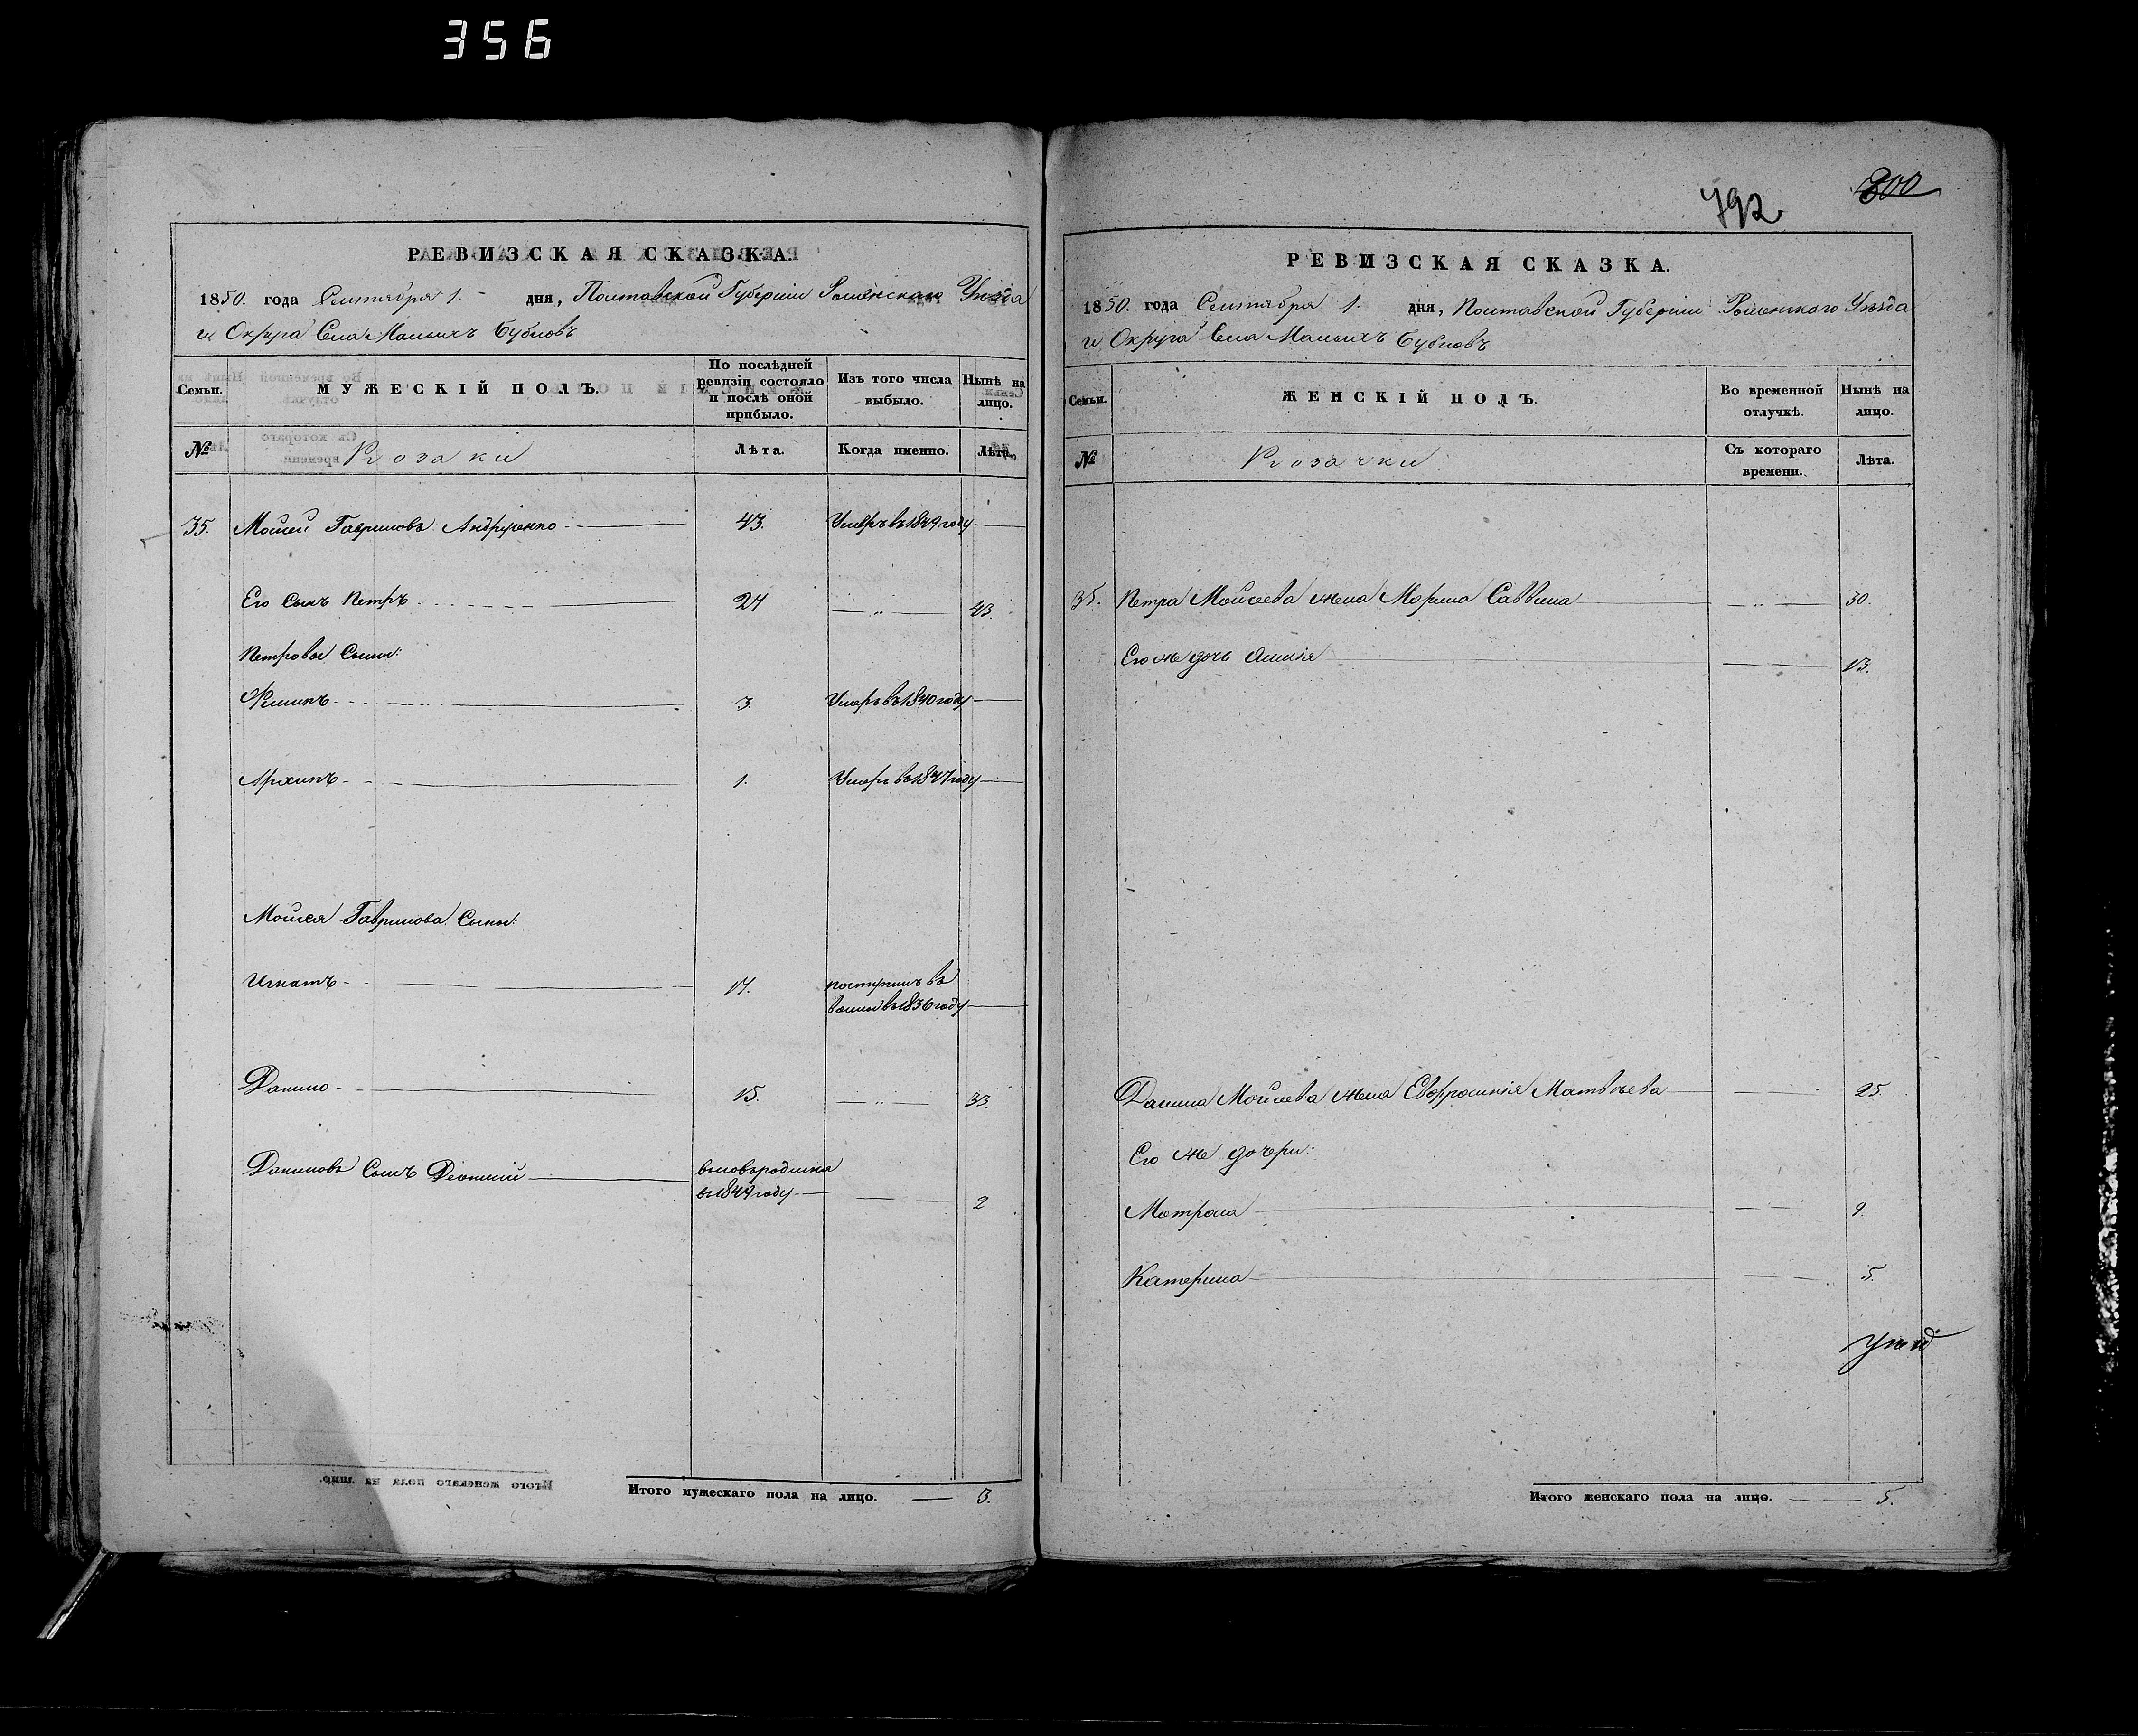 356
792
300
РЕВИЗСКАЯ СКАЗКА.
1850. года Сентября 1. дня, Полтавской Губернiи Роменскаго Уѣзда
и Округа Села Малыхъ Бубновъ
Семьи.
МУЖЕСКІЙ ПОЛЪ.
По послѣдней ревизіи состояло и послѣ оной прибыло.
Изъ того числа выбыло.
Нынѣ на лицо.
№
Козаки
Лѣта.
Когда именно.
Лѣта.
35. Мойсей Гавриловъ Андрущенко 43. Умеръ въ 1849 году
Его Сынъ Петръ 24 43.
Петровы Сыны:
3. Умеръ въ 1840 году
Архипъ 1. Умеръ въ 1847 году
Мойсея Гаврилова Сыны:
Игнатъ 17. поступилъ въ
въ 1836 году
Данило 15. 33.
Даниловъ Сынъ вновьродился
въ 1849 году 2
Итого мужескаго пола на лицо. 3.
РЕВИЗСКАЯ СКАЗКА.
1850. года Сентября 1. дня, Полтавской Губернiи Роменскаго Уѣзда
и Округа Села Малыхъ Бубновъ
Семьи.
ЖЕНСКІЙ ПОЛЪ.
Во временной отлучкѣ.
Нынѣ на лицо.
№
Козачки
Съ котораго времени.
Лѣта.
35. Петра Мойсеева жена Марина Саввина 30.
Его же дочь 13.
Данила Мойсеева жена Евфросинія Матвѣева 25.
Его же дочери:
Мотрона 9.
Катерина 5.
Итого женскаго пола на лицо. 5.